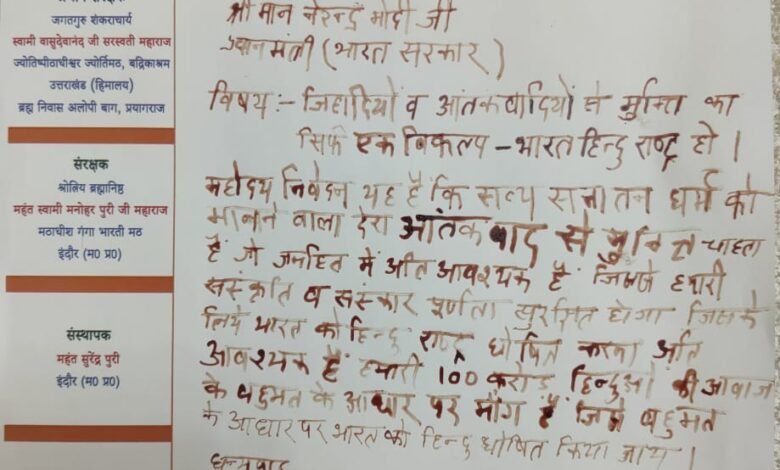 जगतगुरु शंकराचार्य
स्वामी वासुदेवानंद जी सरस्वती महाराज
ज्योतिष्पीठाधीश्वर ज्योर्तिमठ, बद्रिकाश्रम
उत्तराखंड (हिमालय)
ब्रह्म निवास अलोपी बाग, प्रयागराज
संरक्षक
श्रोत्रिय ब्रह्मनिष्ठ
महंत स्वामी मनोहर पुरी जी महाराज
मठाधीश गंगा भारती मठ
इंदौर (म0 प्र0)
संस्थापक
महंत सुरेंद्र पुरी
इंदौर (म0 प्र0)
श्रीमान नरेन्द्र मोदी जी
प्रधानमंत्री (भारत सरकार)
विषय :- जिहादियों व आंतकवादियों से मुक्ति का
सिर्फ एक विकल्प - भारत हिन्दु राष्ट्र हो।
महोदय निवेदन यह है कि सत्य सनातन धर्म को
मानने वाला देश आंतकवाद से मुक्ति चाहता
है जो जनहित में अति आवश्यक है जिससे हमारी
संस्कृति व संस्कार पूर्णता सुरक्षित होगा जिसके
लिये भारत को हिन्दु राष्ट्र घोषित करना अति
आवश्यक है हमारी 100 करोड़ हिन्दुओ की आवाज
के बहुमत के आधार पर मांग है जिसे बहुमत
के आधार पर भारत को हिन्दु घोषित किया जाय।
धन्यवाद